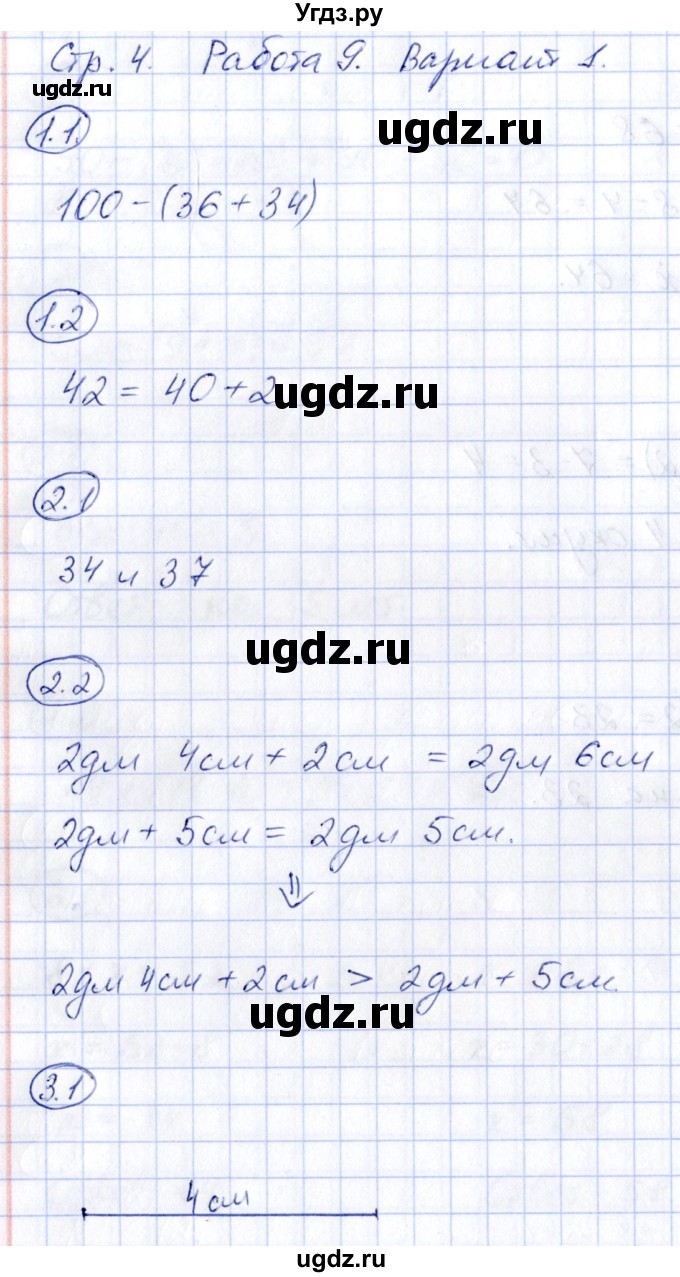 Угдз.ру
Стр. 4. Работа 9. Вариант 1.
ugdz.ru
1.1.
ugdz.ru
100 - (36 + 34)
1.2
42 = 40 + 2
ugdz.ru
2.1
34 и 37
ugdz.ru
2.2
2дм 4см + 2см = 2дм 6см
2дм + 5см = 2дм 5см.
⇓
2дм 4см + 2см > 2дм + 5см.
ugdz.ru
3.1
4 см
ugdz.ru